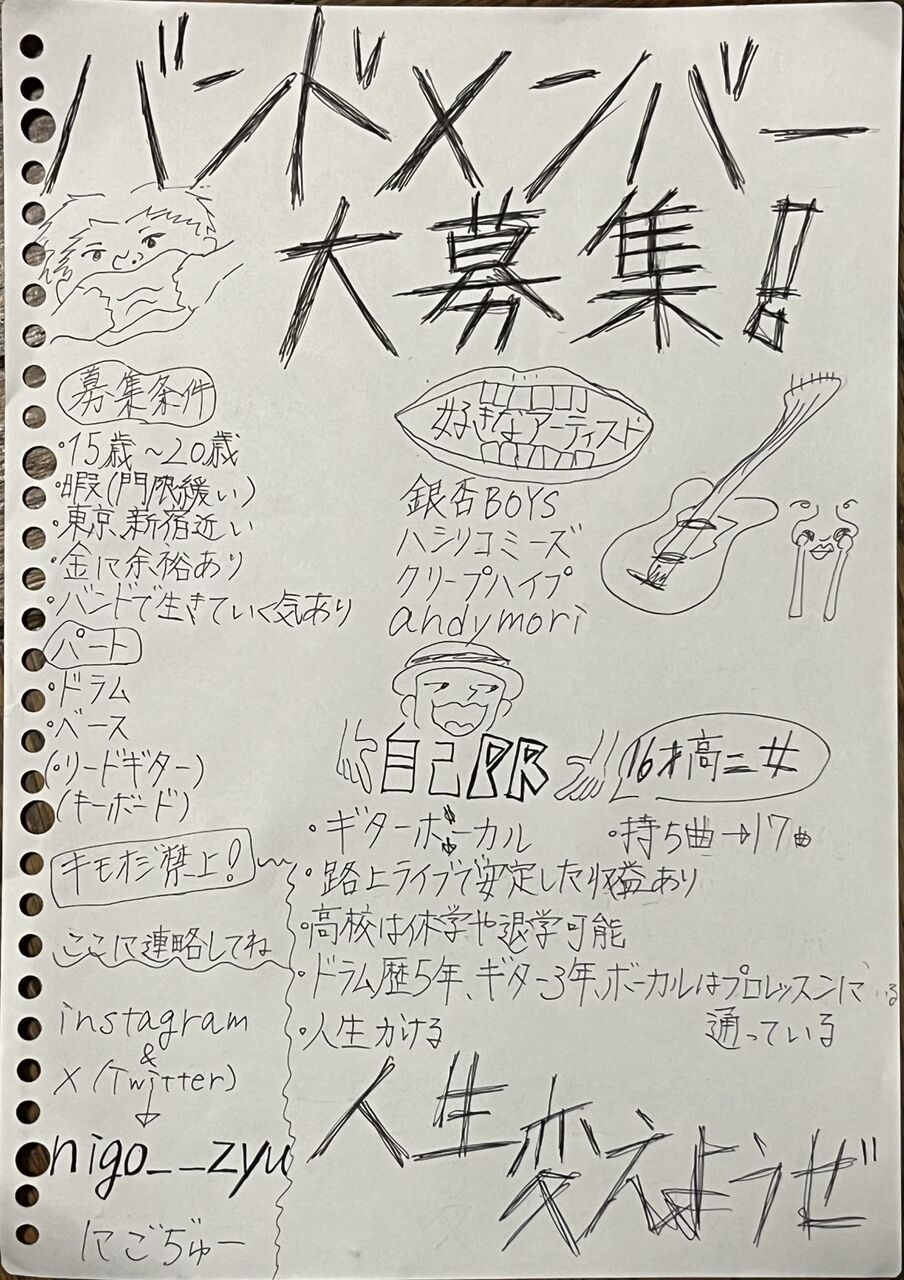 バンドメンバー
大募集!!
募集条件
・15歳~20歳
・暇(門限緩い)
・東京、新宿近い
・金に余裕あり
・バンドで生きていく気あり
パート
・ドラム
・ベース
(・リードギター)
(キーボード)
キモオジ禁止!
ここに連絡してね
instagram
&
X(Twitter)
↓
nigo__zyu
にごぢゅー
好きなアーティスト
銀杏BOYS
ハシリコミーズ
クリープハイプ
andymori
自己PR
16才高二女
・ギターボーカル ・持ち曲→17曲
・路上ライブで安定した収益あり
・高校は休学や退学可能
・ドラム歴5年、ギター3年、ボーカルはプロレッスンに
通っている
・人生かける
人生
変えようぜ